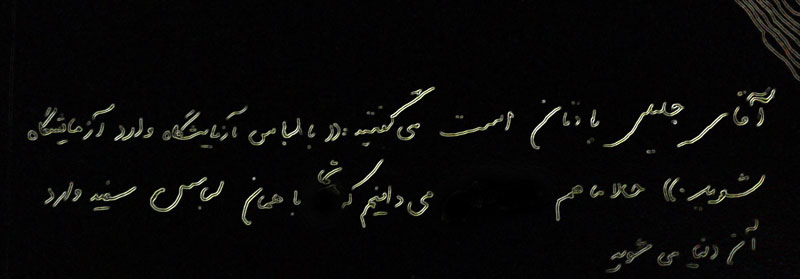 آقای جلیلی یادتان است می گفتید: «با لباس آزمایشگاه وارد آزمایشگاه
شوید.» حالا ما هم می دانیم که شما با همان لباس سفید وارد
آن دنیا می شوید